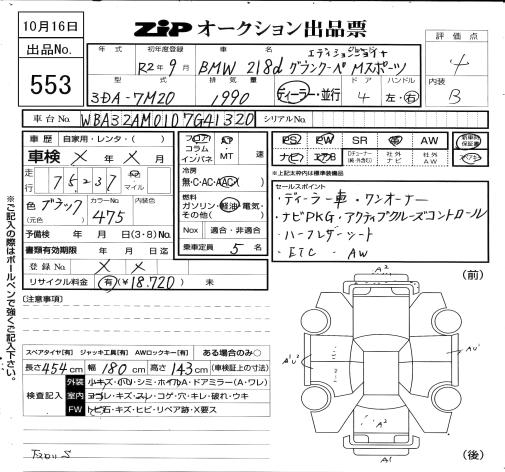 10月16日
ZiP オークション出品票
出品No.
553
年式 初年度登録 車名
R2年9月 BMW 218d グランクーペ Mスポーツ
エディションジョイ+
型式 排気量 ドア ハンドル
3DA-7M20 1990 ディーラー・並行 4 左・右
評価点
4
内装
B
車台No. WBA32AM0107G41320 シリアルNo.
車歴 自家用・レンタ・( )
車検 × 年 × 月
走行 75,237 km マイル
色 ブラック カラーNo. 475
(元色) 内装色
予備検 年 月 日(3・8)No.
書類有効期限 年 月 日迄
登録No. × ×
リサイクル料金 有(¥18,720) 未
フロア AT
コラム
インパネ MT 速
冷房
無・C・AC・AAC
燃料
ガソリン・軽油・電気・
その他( )
Nox 適合・非適合
乗車定員 5 名
PS PW SR AW
ナビ エアB 社外ナビ 社外AW
新車時保証書
※上記文字枠内は標準装備品
セールスポイント
・ディーラー車・ワンオーナー
・ナビPKG・アクティブクルーズコントロール
・ハーフレザーシート
・ETC ・AW
[注意事項]
スペアタイヤ[有] ジャッキ工具[有] AWロックキー[有] ある場合のみ○
長さ454cm 幅180cm 高さ143cm (車検証上の寸法)
検査記入
外装 小キズ・凹・シミ・ホイルA・ドアミラー(A・ワレ)
室内 ヨゴレ・キズ・スレ・コゲ・穴・キレ・破れ・ウキ
FW トビ石・キズ・ヒビ・リペア跡・X要ス
※ご記入の際はボールペンで強くご記入下さい。
(前)
A2
A2
AU1
A1
(後)